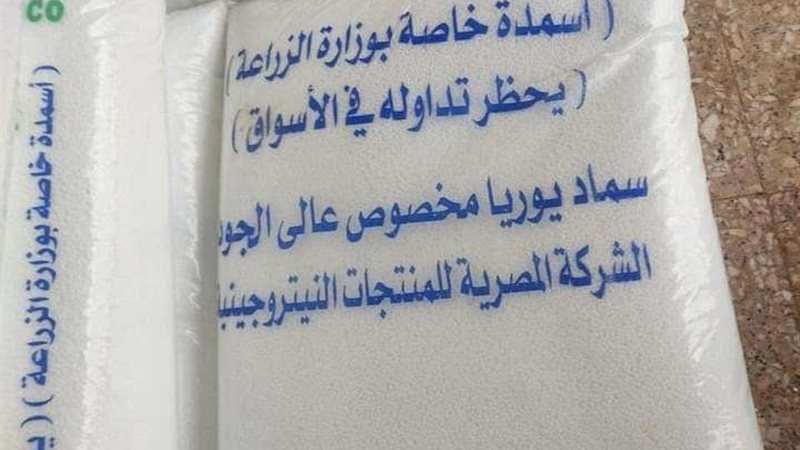 ( أسمدة خاصة بوزارة الزراعة )
( يحظر تداوله في الأسواق )
سماد يوريا مخصوص عالى
الشركة المصرية للمنتجات
CO
( أسمدة خاصة بوزارة الزراعة ) (